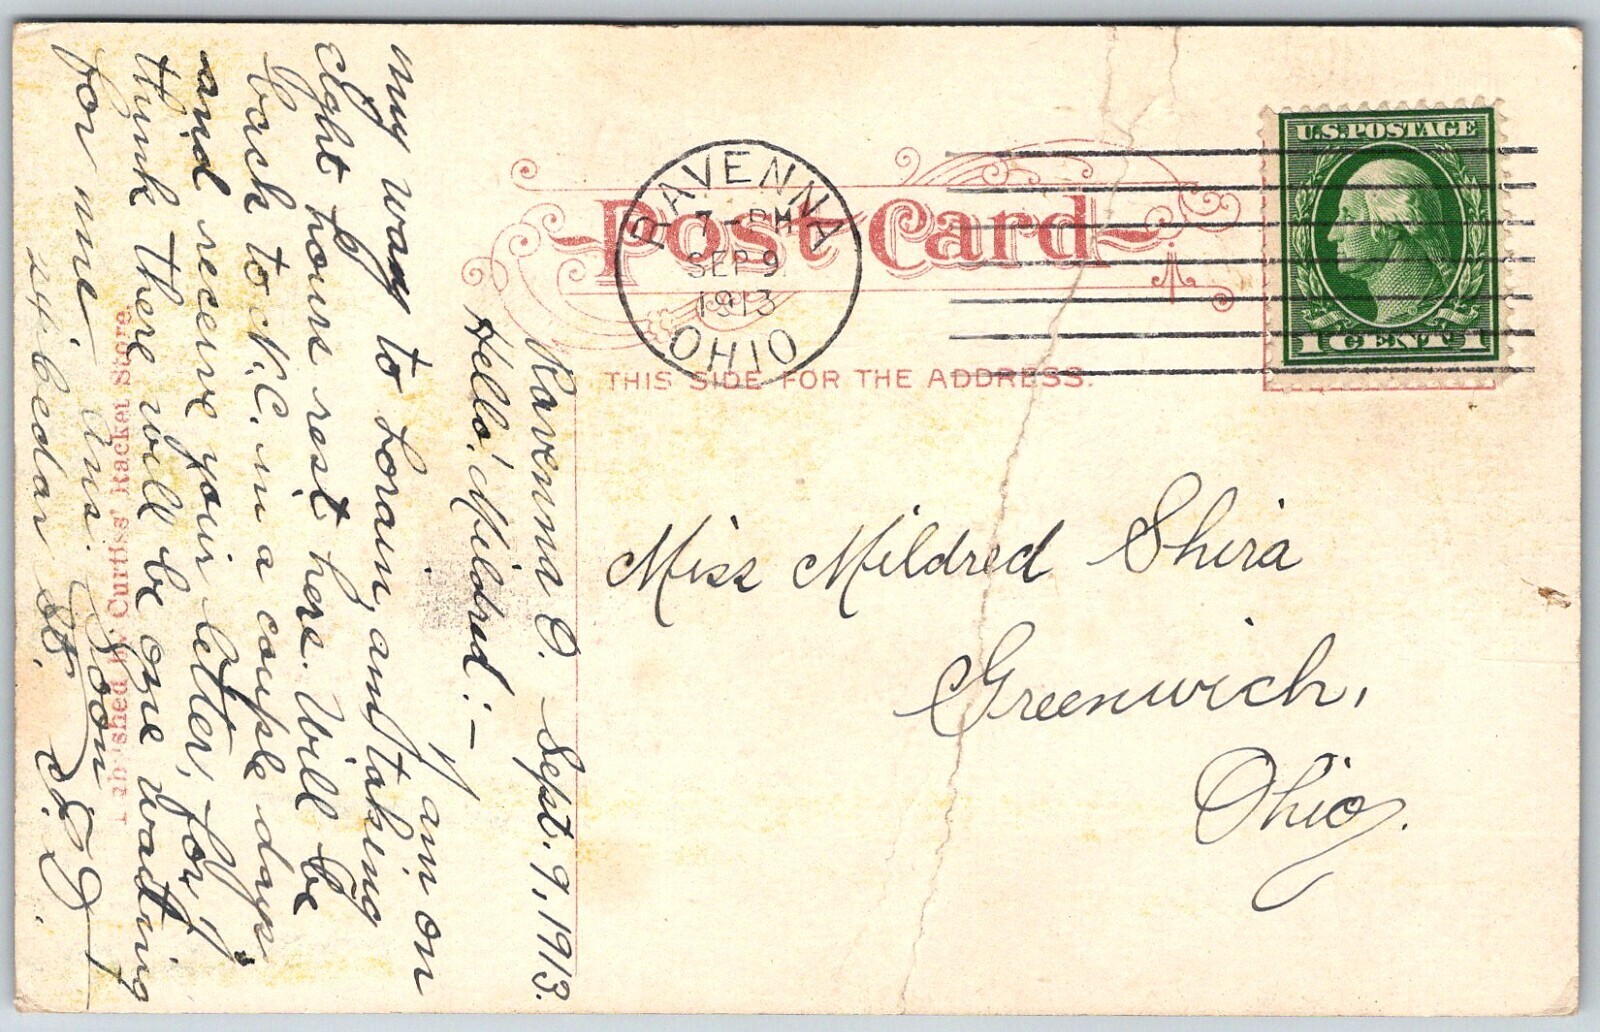 U.S. POSTAGE
1 CENT 1
RAVENNA
7-PM
SEP 9
1913
OHIO
Post Card
THIS SIDE FOR THE ADDRESS.
Miss Mildred Shira
Greenwich,
Ohio.
Ravenna O. Sept. 9, 1913.
Hello! Mildred:—
I am on
my way to Lorain, am taking
eight hours rest here. Will be
back to N.C. in a couple days
and receive your letter, for, I
think there will be one waiting
for me. Ans. Soon
24 Cedar St.
Published by Curtiss' Racket Store.